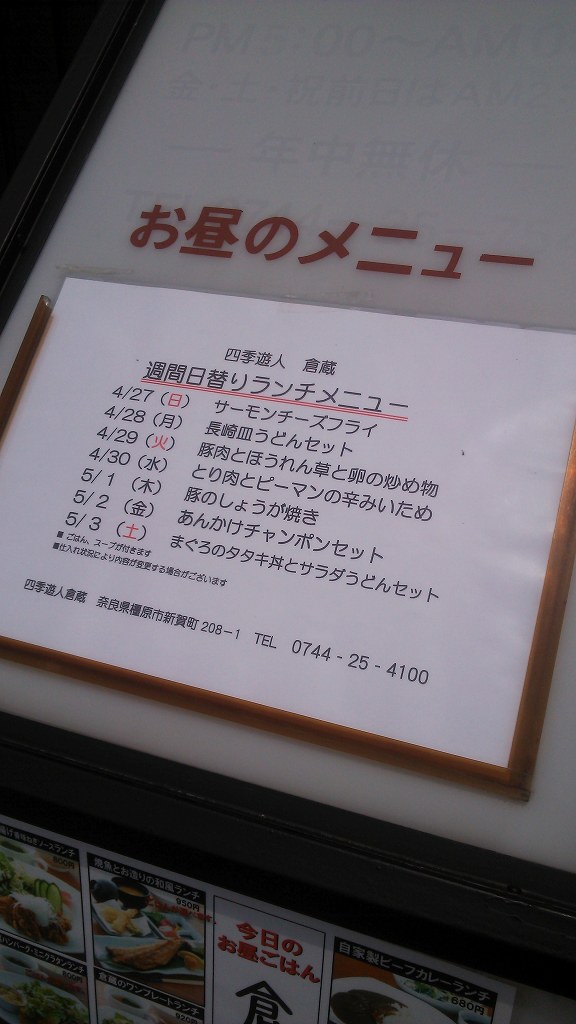 PM5:00～AM
金・土・祝前日はAM2
年中無休
お昼のメニュー
四季遊人　倉蔵
週間日替りランチメニュー
4/27（日）　サーモンチーズフライ
4/28（月）　長崎皿うどんセット
4/29（火）　豚肉とほうれん草と卵の炒め物
4/30（水）　とり肉とピーマンの辛みいため
5/ 1 （木）　豚のしょうが焼き
5/ 2 （金）　あんかけチャンポンセット
5/ 3 （土）　まぐろのタタキ丼とサラダうどんセット
■ ごはん、スープが付きます
■仕入れ状況により内容が変更する場合がございます
四季遊人倉蔵　奈良県橿原市新賀町 208－1　TEL　0744 - 25 - 4100
お造りの和風ランチ
950円
今日の
お昼ごはん
倉
自家製ビーフカレーランチ
680円
ハンバーグ・ミニグラタンランチ
倉蔵のワンプレートランチ
920円